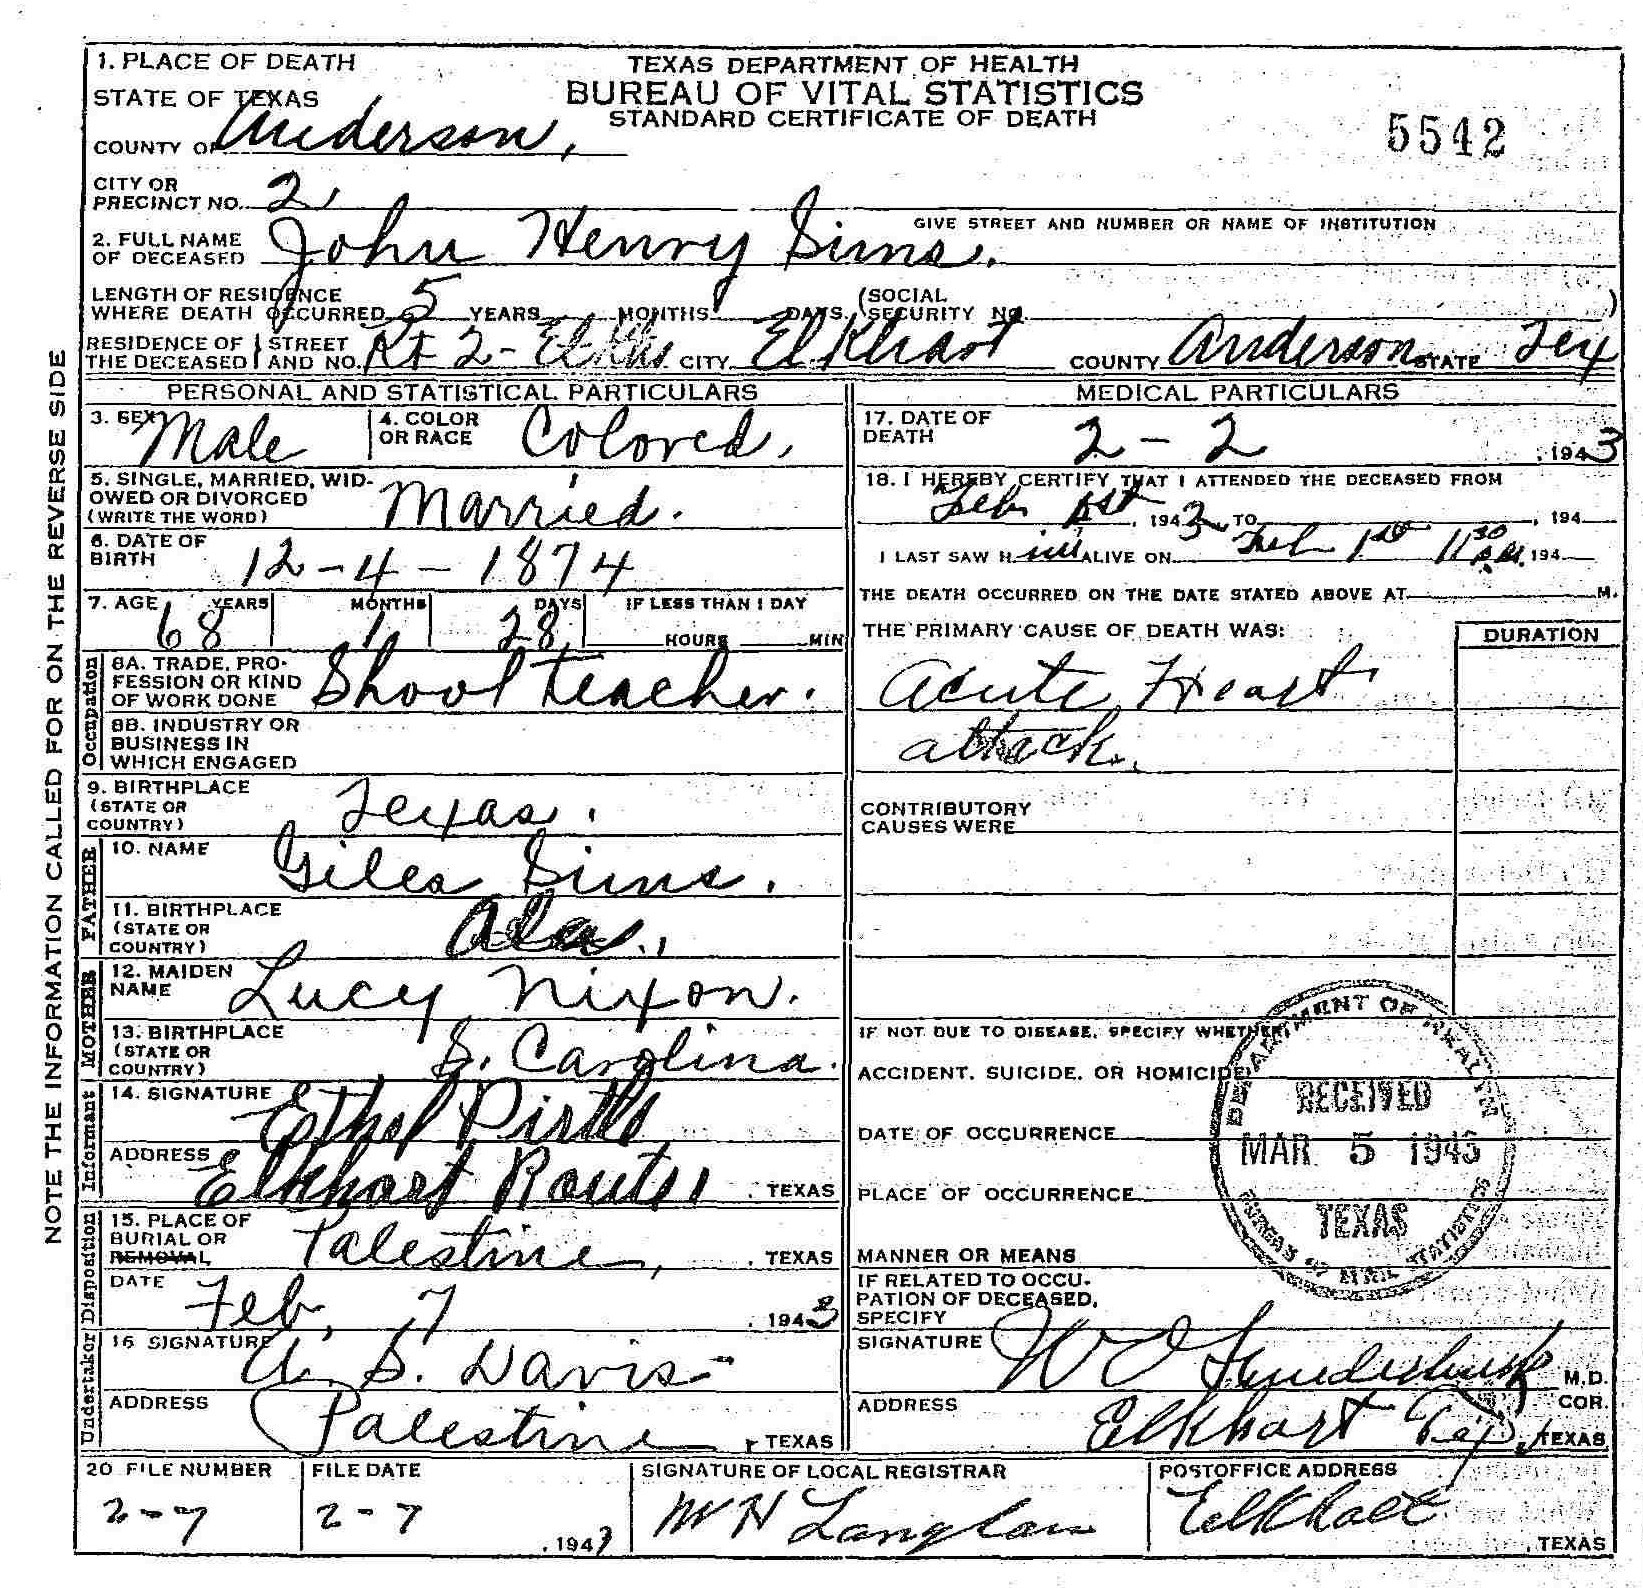 NOTE THE INFORMATION CALLED FOR ON THE REVERSE SIDE
TEXAS DEPARTMENT OF HEALTH
BUREAU OF VITAL STATISTICS
STANDARD CERTIFICATE OF DEATH
5542
1. PLACE OF DEATH
STATE OF TEXAS
COUNTY OF Anderson,
CITY OR PRECINCT NO. 2,
GIVE STREET AND NUMBER OR NAME OF INSTITUTION
2. FULL NAME OF DECEASED John Henry Sims.
LENGTH OF RESIDENCE WHERE DEATH OCCURRED 5 YEARS MONTHS DAYS. (SOCIAL SECURITY NO. )
RESIDENCE OF THE DECEASED STREET AND NO. Rt 2 - CITY Elkhart COUNTY Anderson STATE Tex
PERSONAL AND STATISTICAL PARTICULARS
3. SEX Male 4. COLOR OR RACE Colored,
5. SINGLE, MARRIED, WIDOWED OR DIVORCED (WRITE THE WORD) Married.
6. DATE OF BIRTH 12-4-1874
7. AGE 68 YEARS 1 MONTHS 28 DAYS IF LESS THAN 1 DAY HOURS MIN
Occupation
8A. TRADE, PROFESSION OR KIND OF WORK DONE Shool teacher.
8B. INDUSTRY OR BUSINESS IN WHICH ENGAGED
9. BIRTHPLACE (STATE OR COUNTRY) Texas.
FATHER
10. NAME Giles Sims.
11. BIRTHPLACE (STATE OR COUNTRY) Ala.,
MOTHER
12. MAIDEN NAME Lucy Nixon.
13. BIRTHPLACE (STATE OR COUNTRY) S. Carolina.
Informant
14. SIGNATURE Ethel Pirtle
ADDRESS Elkhart Route 1 TEXAS
Disposition
15. PLACE OF BURIAL OR REMOVAL Palestine, TEXAS
DATE Feb. 7, 1943
Undertaker
16 SIGNATURE A. S. Davis
ADDRESS Palestine, TEXAS
MEDICAL PARTICULARS
17. DATE OF DEATH 2-2, 1943
18. I HEREBY CERTIFY THAT I ATTENDED THE DECEASED FROM
Feb 1st, 1943 TO , 194
I LAST SAW H im ALIVE ON Feb 1st 11 30 194
THE DEATH OCCURRED ON THE DATE STATED ABOVE AT M.
THE PRIMARY CAUSE OF DEATH WAS: DURATION
Acute Heart
attack.
CONTRIBUTORY CAUSES WERE
IF NOT DUE TO DISEASE, SPECIFY WHETHER
ACCIDENT, SUICIDE, OR HOMICIDE
DATE OF OCCURRENCE
PLACE OF OCCURRENCE
MANNER OR MEANS
IF RELATED TO OCCUPATION OF DECEASED, SPECIFY
DEPARTMENT OF HEALTH
RECEIVED
MAR 5 1943
TEXAS
BUREAU OF VITAL STATISTICS
SIGNATURE W O Funderburk M.D. COR.
ADDRESS Elkhart TEXAS
20 FILE NUMBER 2-7
FILE DATE 2-7, 1943
SIGNATURE OF LOCAL REGISTRAR
POSTOFFICE ADDRESS Elkhart, TEXAS